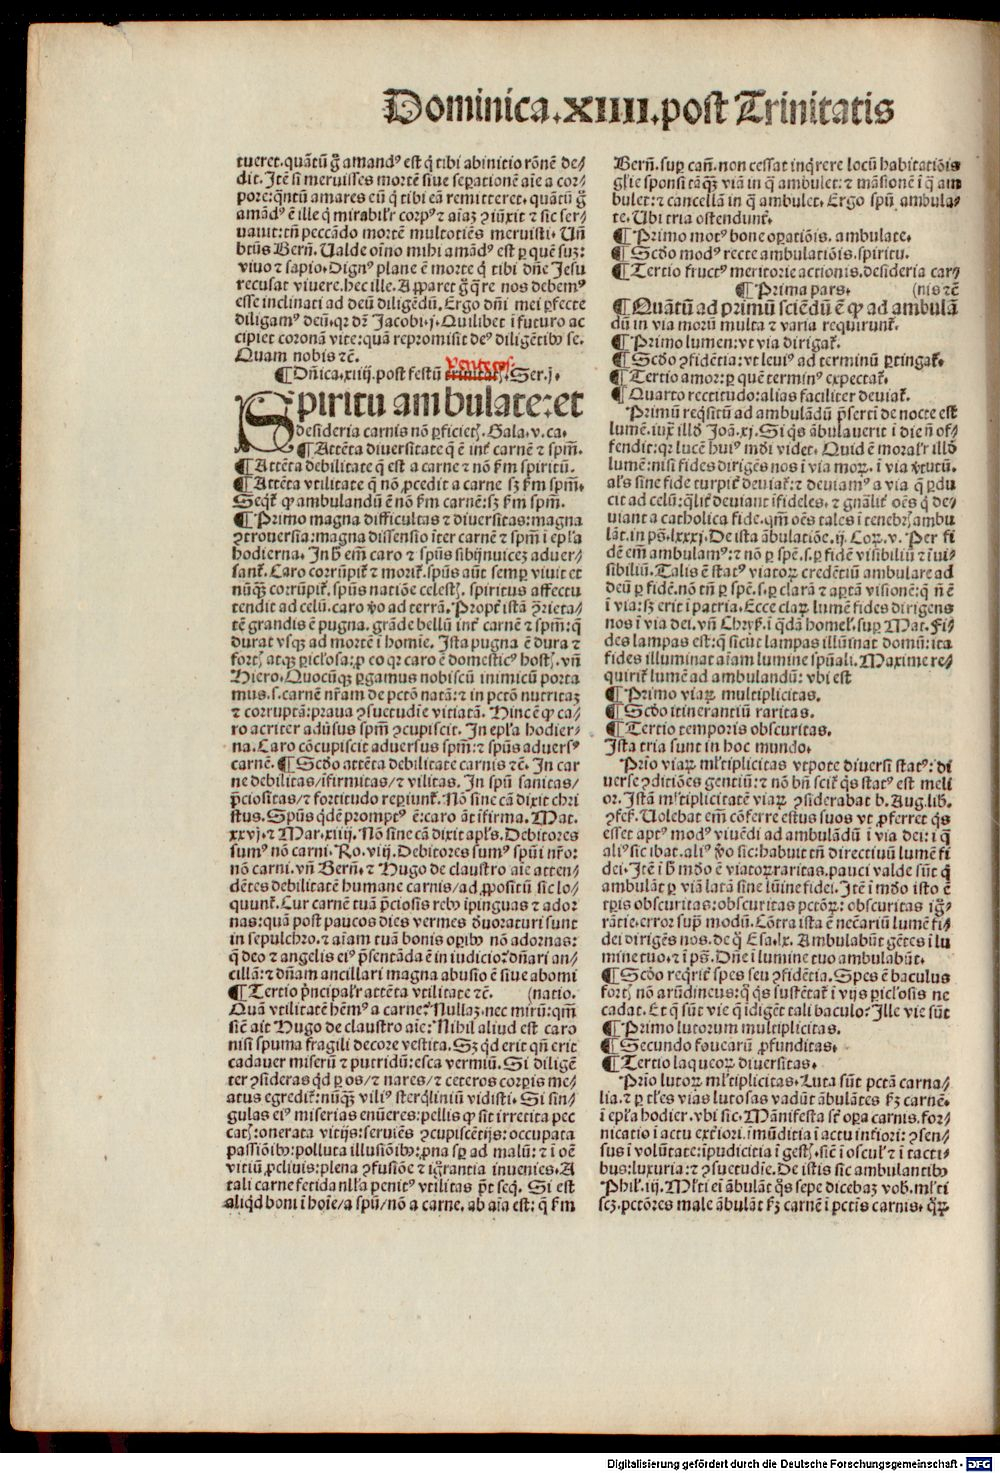 Dominica.XIIII.post Trinitatis
tueret.quātū ḡ amandꝰ est q̄ tibi abinitio rōnē de⸗
dit. Itē si meruisses mortē siue seꝑationē aīe a cor⸗
pore:q̄ntū amares eū q̄ tibi eā remitteret. quātū ḡ
amādꝰ ē ille q̄ mirabilr̄ corpꝰ ⁊ aīaꝫ ꝯiūxit ⁊ sic ser⸗
uauit:tn̄ peccādo mortē multotiēs meruisti. Un̄
btūs Bern̄. Ualde oīno mihi amādꝰ est ꝑ quē suꝫ:
viuo ⁊ sapio. Dignꝰ plane ē morte q̄ tibi dn̄e Jesu
recusat viuere. hec ille. Apparet ḡ q̄re nos debemꝰ
esse inclinati ad deū diligēdū. Ergo dn̄i mei ꝑfecte
diligamꝰ deū. qr dr̄ Jacobi.j. Quilibet ī futuro ac
cipiet coronā vite:quā repromisit deꝰ diligētibꝰ se.
Quam nobis ⁊c̄.
¶ Dn̄ica.xiiij.post festū trinitatꝭ. Ser.j.
Spiritu ambulate:et
desideria carnis nō ꝑficietꝭ. Gala.v.ca.
¶ Attēta diuersitate q̄ ē int̄ carnē ⁊ spm̄.
¶ Attēta debilitate q̄ est a carne ⁊ nō ẜm spiritū.
¶ Attēta vtilitate q̄ nō ꝓcedit a carne sꝫ ẜm spm̄.
Seqt̄ ꝙ ambulandū ē nō ẜm carnē:sꝫ ẜm spm̄.
¶ Primo magna difficultas ⁊ diuersitas:magna
ꝯtrouersia:magna dissensio īter carnē ⁊ spm̄ ī epl̄a
hodierna. In h̄ em̄ caro ⁊ spūs sibijnuiceꝫ aduer⸗
sant̄. Caro corrūpit̄ ⁊ morit̄. spūs aūt semꝑ viuit et
nūqꝫ corrūpit̄. spūs natiōe celestꝭ. spiritus affectu
tendit ad celū. caro v̄o ad terrā. Propt̄ istā ꝯrieta⸗
tē grandis ē pugna. grāde bellū int̄ carnē ⁊ spm̄:q̄
durat vsqꝫ ad mortē ī homīe. Ista pugna ē dura ⁊
fortꝭ atqꝫ ꝑicl̄osa:ꝓ eo qr caro ē domesticꝰ hostꝭ. vn̄
Hiero. Quocūqꝫ ꝑgamus nobiscū inimicū porta
mus.s.carnē nr̄am de pctō natā:⁊ in pctō nutritaꝫ
⁊ corruptā:praua ꝯsuetudīe vitiatā. Hinc ē ꝙ ca⸗
ro acriter adūsus spm̄ ꝯcupiscit. In epl̄a hodier⸗
na. Caro cōcupiscit aduersus spm̄:⁊ spūs aduersꝰ
carnē. ¶ Scd̄o attēta debilitate carnis ⁊c̄. In car
ne debilitas/īfirmitas/⁊ vilitas. In spū sanitas/
p̄ciositas/⁊ fortitudo reꝑiunt̄. Nō sine cā dixit chri
stus. Spūs qdē promptꝰ ē:caro āt īfirma. Mat.
xxvj.⁊ Mar.xiiij. Nō sine cā dixit apl̄s. Debitores
sumꝰ nō carni. Ro.viij. Debitores sumꝰ spūi nr̄o:
nō carni. vn̄ Bern̄. ⁊ Hugo de claustro aīe atten⸗
dētes debilitatē humane carnis/ad ꝓpositū sic lo⸗
quunt̄. Cur carnē tuā p̄ciosis rebꝰ īpinguas ⁊ ador
nas:quā post paucos dies vermes d̄uoraturi sunt
in sepulchro.⁊ aīam tuā bonis oꝑibꝰ nō adornas:
q̄ deo ⁊ angelis eiꝰ p̄sentāda ē in iudicio:dn̄ari an⸗
cillā:⁊ dn̄am ancillari magna abusio ē siue abomi
¶ Tertio p̄ncipalr̄ attēta vtilitate ⁊c̄. (natio.
Quā vtilitatē hēmꝰ a carne? Nullaꝫ.nec mirū:qm̄
siē ait Hugo de claustro aīe: Nihil aliud est caro
nisi spuma fragili decore vestita. Sꝫ qd erit qn̄ erit
cadauer miserū ⁊ putridū:esca vermiū. Si diligē
ter ꝯsideras qd ꝑ os/⁊ nares/⁊ ceteros corꝑis me⸗
atus egredit̄:nūqꝫ viliꝰ sterqliniū vidisti. Si sin⸗
gulas eiꝰ miserias enūeres:pellis ꝙ sit irretita pec
catꝭ:onerata vitijs:seruiēs ꝯcupiscētijs:occupata
passiōibꝰ:polluta illusiōibꝰ:ꝓna sꝑ ad malū:⁊ ī oē
vitiū ꝓcliuis:plena ꝯfusiōe ⁊ ignorātia inuenies. A
tali carne fetida nll̄a penitꝰ vtilitas p̄t seq. Si est
aliqd boni ī hoīe/a spū/nō a carne. ab aīa est: q̄ ẜm
Bern̄. suꝑ can̄. non cessat inqrere locū habitatiōis
gl̄ie sponsi tāqꝫ viā in q̄ ambulet:⁊ māsionē ī q̄ am
bulet:⁊ cancellā in q̄ ambulet. Ergo spū ambula⸗
te. Ubi tria ostendunt̄.
¶ Primo motꝰ bone oꝑatiōis. ambulate.
¶ Scd̄o modꝰ recte ambulatiōis. spiritu.
¶ Tertio fructꝰ meritorie actionis. desideria car⸗
¶ Prima pars. (nis ⁊c̄
¶ Quātū ad primū sciēdū ē ꝙ ad ambulā
dū in via morū multa ⁊ varia requirunt̄.
¶ Primo lumen:vt via dirigat̄.
¶ Scd̄o ꝯfidētia:vt leuiꝰ ad terminū ꝑtingat̄.
¶ Tertio amor:ꝑ quē terminꝰ expectat̄.
¶ Quarto rectitudo:alias faciliter deuiat̄.
Primū reqsitū ad ambulādū p̄sertī de nocte est
lumē.iuxͣ illd̄ Joā.xj. Si qs ābulauerit ī die n̄ of⸗
fendit:qr lucē huiꝰ mūdi videt. Quid ē moralr̄ illd̄
lumē:nisi fides dirigēs nos ī via moꝝ. ī via v̄tutū.
al̄s sine fide turpit̄ deuiat̄:⁊ deuiamꝰ a via q̄ ꝑdu
cit ad celū:qlit̄ deuiant īfideles. ⁊ gn̄alit̄ oēs q̄ de⸗
uiant a catholica fide.qm̄ oēs tales ī tenebrꝭ ambu
lāt.in ps̄.lxxxj. De ista ābulatiōe.ij. Coꝝ.v. Per fi
dē em̄ ambulamꝰ:⁊ nō ꝑ spē.s.ꝑ fidē visibiliū ⁊ īui⸗
sibiliū. Talis ē statꝰ viatoꝝ credētiū ambulare ad
deū ꝑ fidē.nō tn̄ ꝑ spē.s.ꝑ clarā ⁊ aꝑtā visionē:q̄ n̄ ē
ī via:sꝫ erit ī patria. Ecce claꝝ lumē fides dirigens
nos ī via dei. vn̄ Chrys̄. ī qdā homel̄.suꝑ Mat. Fi⸗
des lampas est:q̄ sicut lampas illūinat domū:ita
fides illuminat aīam lumine spūali. Maxime re⸗
quirit̄ lumē ad ambulandū: vbi est
¶ Primo viaꝝ multiplicitas.
¶ Scd̄o itinerantiū raritas.
¶ Tertio temporis obscuritas.
Ista tria sunt in hoc mundo.
Prīo viaꝝ ml̄tiplicitas vtpote diuersi statꝰ: di
uerse ꝯditiōes gentiū:⁊ nō bn̄ scit̄ qs statꝰ est meli
or. Istā ml̄tiplicitatē viaꝝ ꝯsiderabat b. Aug. lib̄.
ꝯfes̄. Uolebat em̄ cōferre estus suos vt ꝓferret qs
esset aptꝰ modꝰ viuēdi ad ambulādū ī via dei: ī q̄
aliꝰ sic ibat.aliꝰ v̄o sic:habuit tn̄ directiuū lumē fi
dei. Itē ī h̄ mūdo ē viatoꝝ raritas. pauci valde sūt q̄
ambulāt ꝑ viā latā sine lūine fidei. Itē ī mūdo isto ē
tꝑis obscuritas:obscuritas pctōꝝ: obscuritas igno⸗
rātie.error supͣ modū. Cōtra ista ē necēariū lumē fi⸗
dei dirigēs nos.de q̄ Esa.lx. Ambulabūt gētes ī lu
mine tuo.⁊ ī ps̄. Dn̄e ī lumine tuo ambulabūt.
¶ Scd̄o reqrit̄ spes seu ꝯfidētia. Spes ē baculus
fortꝭ nō arūdineus:q̄ qs sustētat̄ ī vijs ꝑicl̄osis ne
cadat. Et q̄ sūt vie q̄ īdigēt tali baculo? Ille vie sūt
¶ Primo lutorum multiplicitas.
¶ Secundo fouearū ꝓfunditas.
¶ Tertio laqueoꝝ diuersitas.
Prīo lutoꝝ ml̄tiplicitas. Luta sūt pctā carna⸗
lia.⁊ ꝑ tl̄es vias lutosas vadūt ābulātes ẜm carnē.
ī epl̄a hodier. vbi sic. Mānifesta st̄ oꝑa carnis. for⸗
nicatio ī actu ext̄iori.īmūditia ī actu int̄iori: ꝯsen⸗
sus ī volūtate:īpudicitia ī gestꝭ.siē ī oscul̄ ⁊ ī tacti⸗
bus:luxuria:⁊ ꝯsuetudīe. De istis sic ambulantibꝰ
Phil̄.iij. Ml̄ti ei ābulāt q̄s sepe dicebaꝫ vob̄. ml̄ti
scꝫ.pctōres male ābulāt ẜm carnē ī pctīs carnis. q̄ꝝ
Digitalisierung gefördert durch die Deutsche Forschungsgemeinschaft - DFG